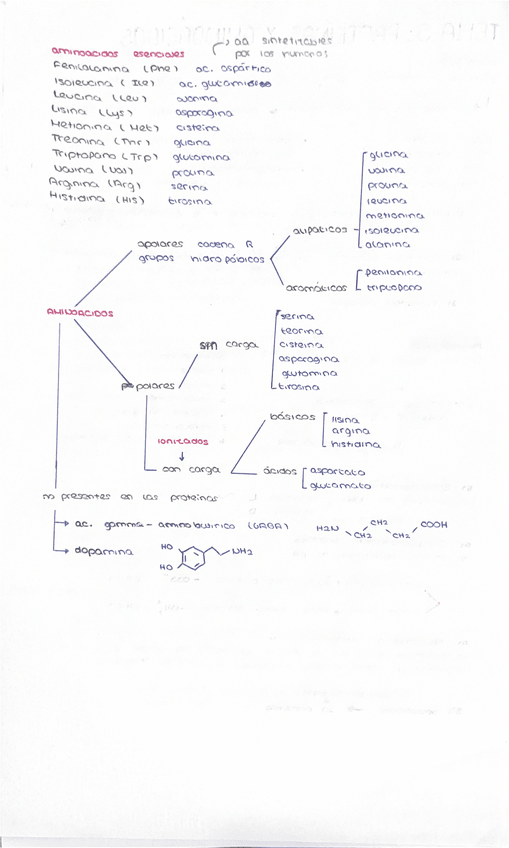 aminoácidos esenciales
aa sintetizables
por los humanos
Fenilalanina (Phe) ac. aspártico
Isoleucina (Ile)
Leucina (Leu)
Lisina (Lys) asparagina
Metionina (Met) cisteína
Treonina (Thr) glicina
Triptofano (Trp) glutamina
Valina (Val) prolina
Arginina (Arg) serina
Histidina (His) tirosina
glicina
valina
prolina
leucina
metionina
isoleucina
alanina
alifáticos
apolares cadena R
grupos hidrofóbicos
aromáticos
fenilanina
triptofano
AMINOÁCIDOS
sin carga
serina
teorina
cisteína
asparagina
glutamina
tirosina
polares
ionizados
con carga
básicos
lisina
argina
histidina
ácidos
aspartato
glutamato
no presentes en las proteínas
ac. gamma-aminobutírico (GABA)
H2N CH2 CH2 CH2 COOH
dopamina
HO
HO
NH2